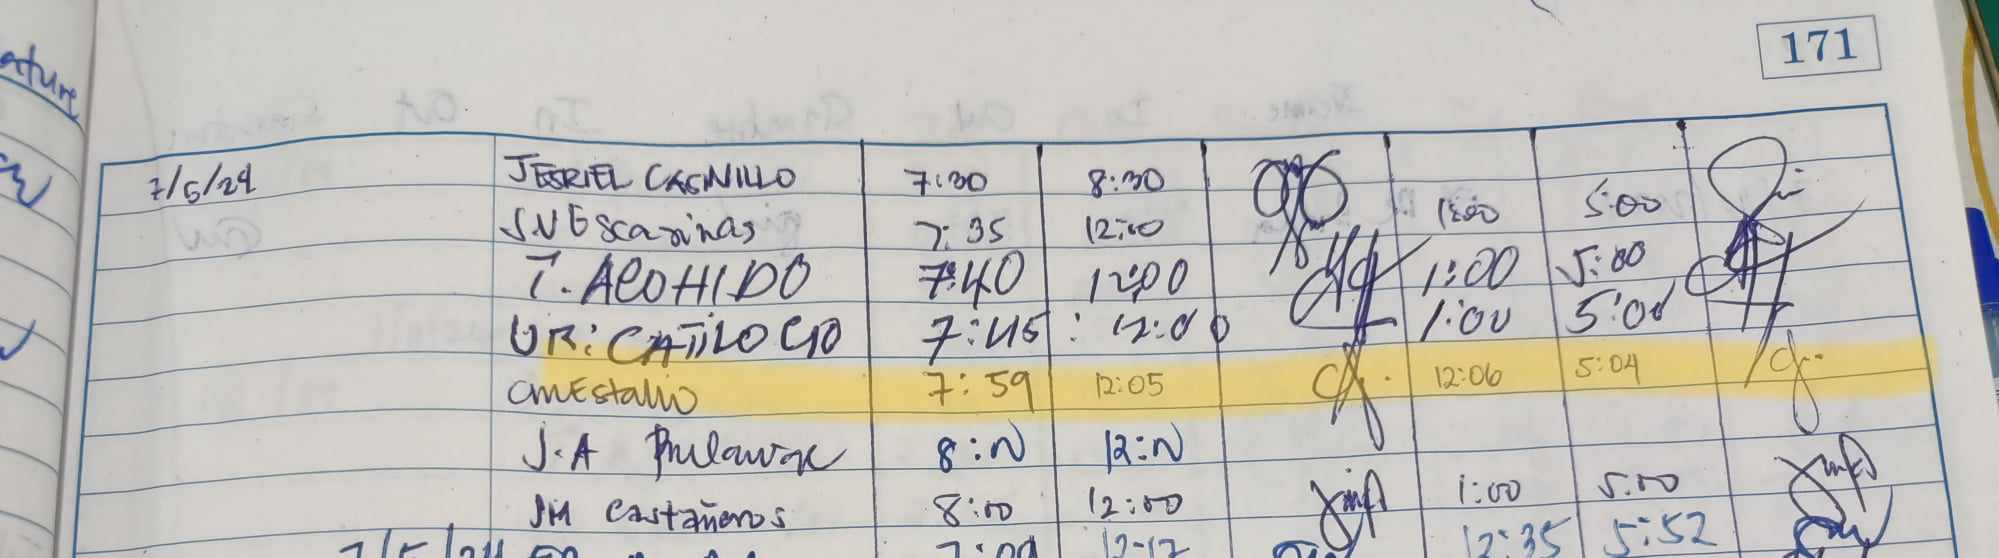 ature
171
7/5/24 JESRIEL CASINILLO 7:30 8:30
JVEscarinas 7:35 12:00 1:00 5:00
T. ALOHIDO 7:40 12:00 1:00 5:00
UR: CATILOGO 7:45 12:00 1:00 5:00
CMEstallo 7:59 12:05 12:06 5:04
J.A 8:N 12:N
JM Castañeros 8:00 12:00 1:00 5:00
7/5/24 12:17 12:35 5:52